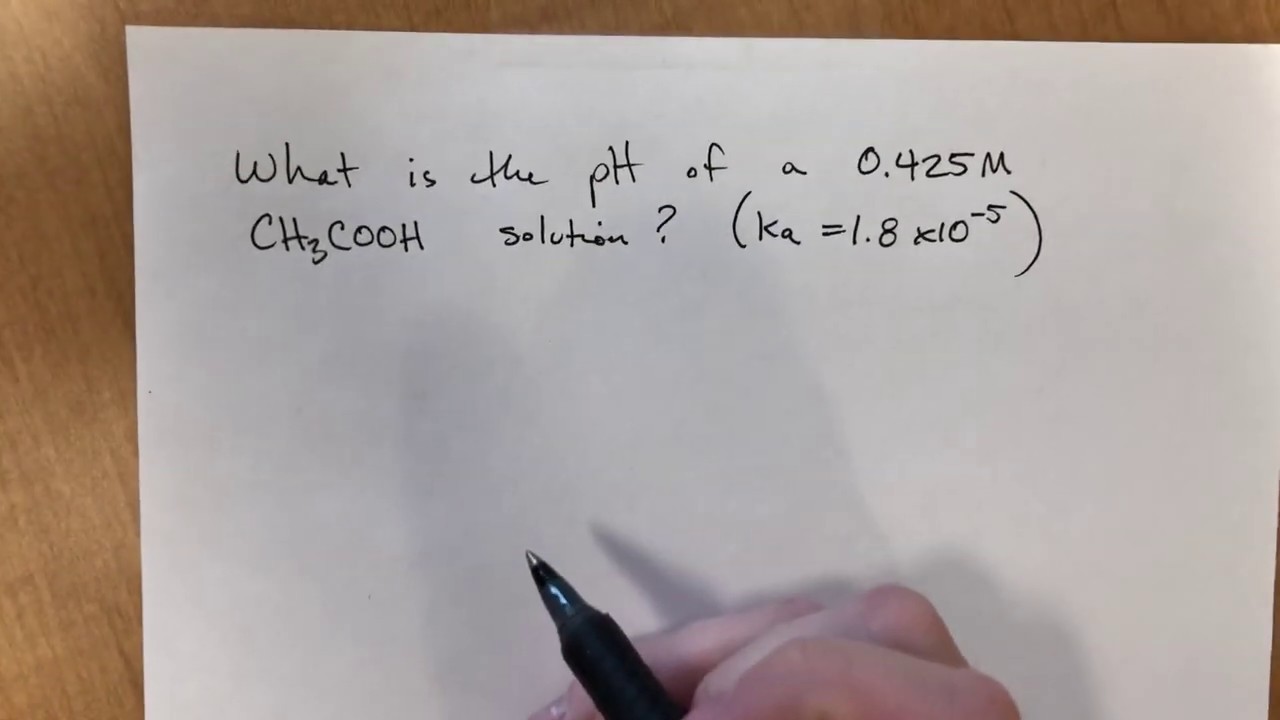 What is the pH of a 0.425M
CH₃COOH solution? (Ka = 1.8 x10⁻⁵)